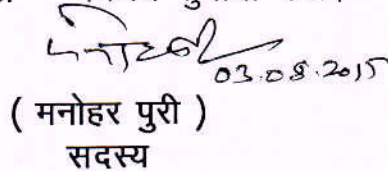 03.08.2015
( मनोहर पुरी )
सदस्य